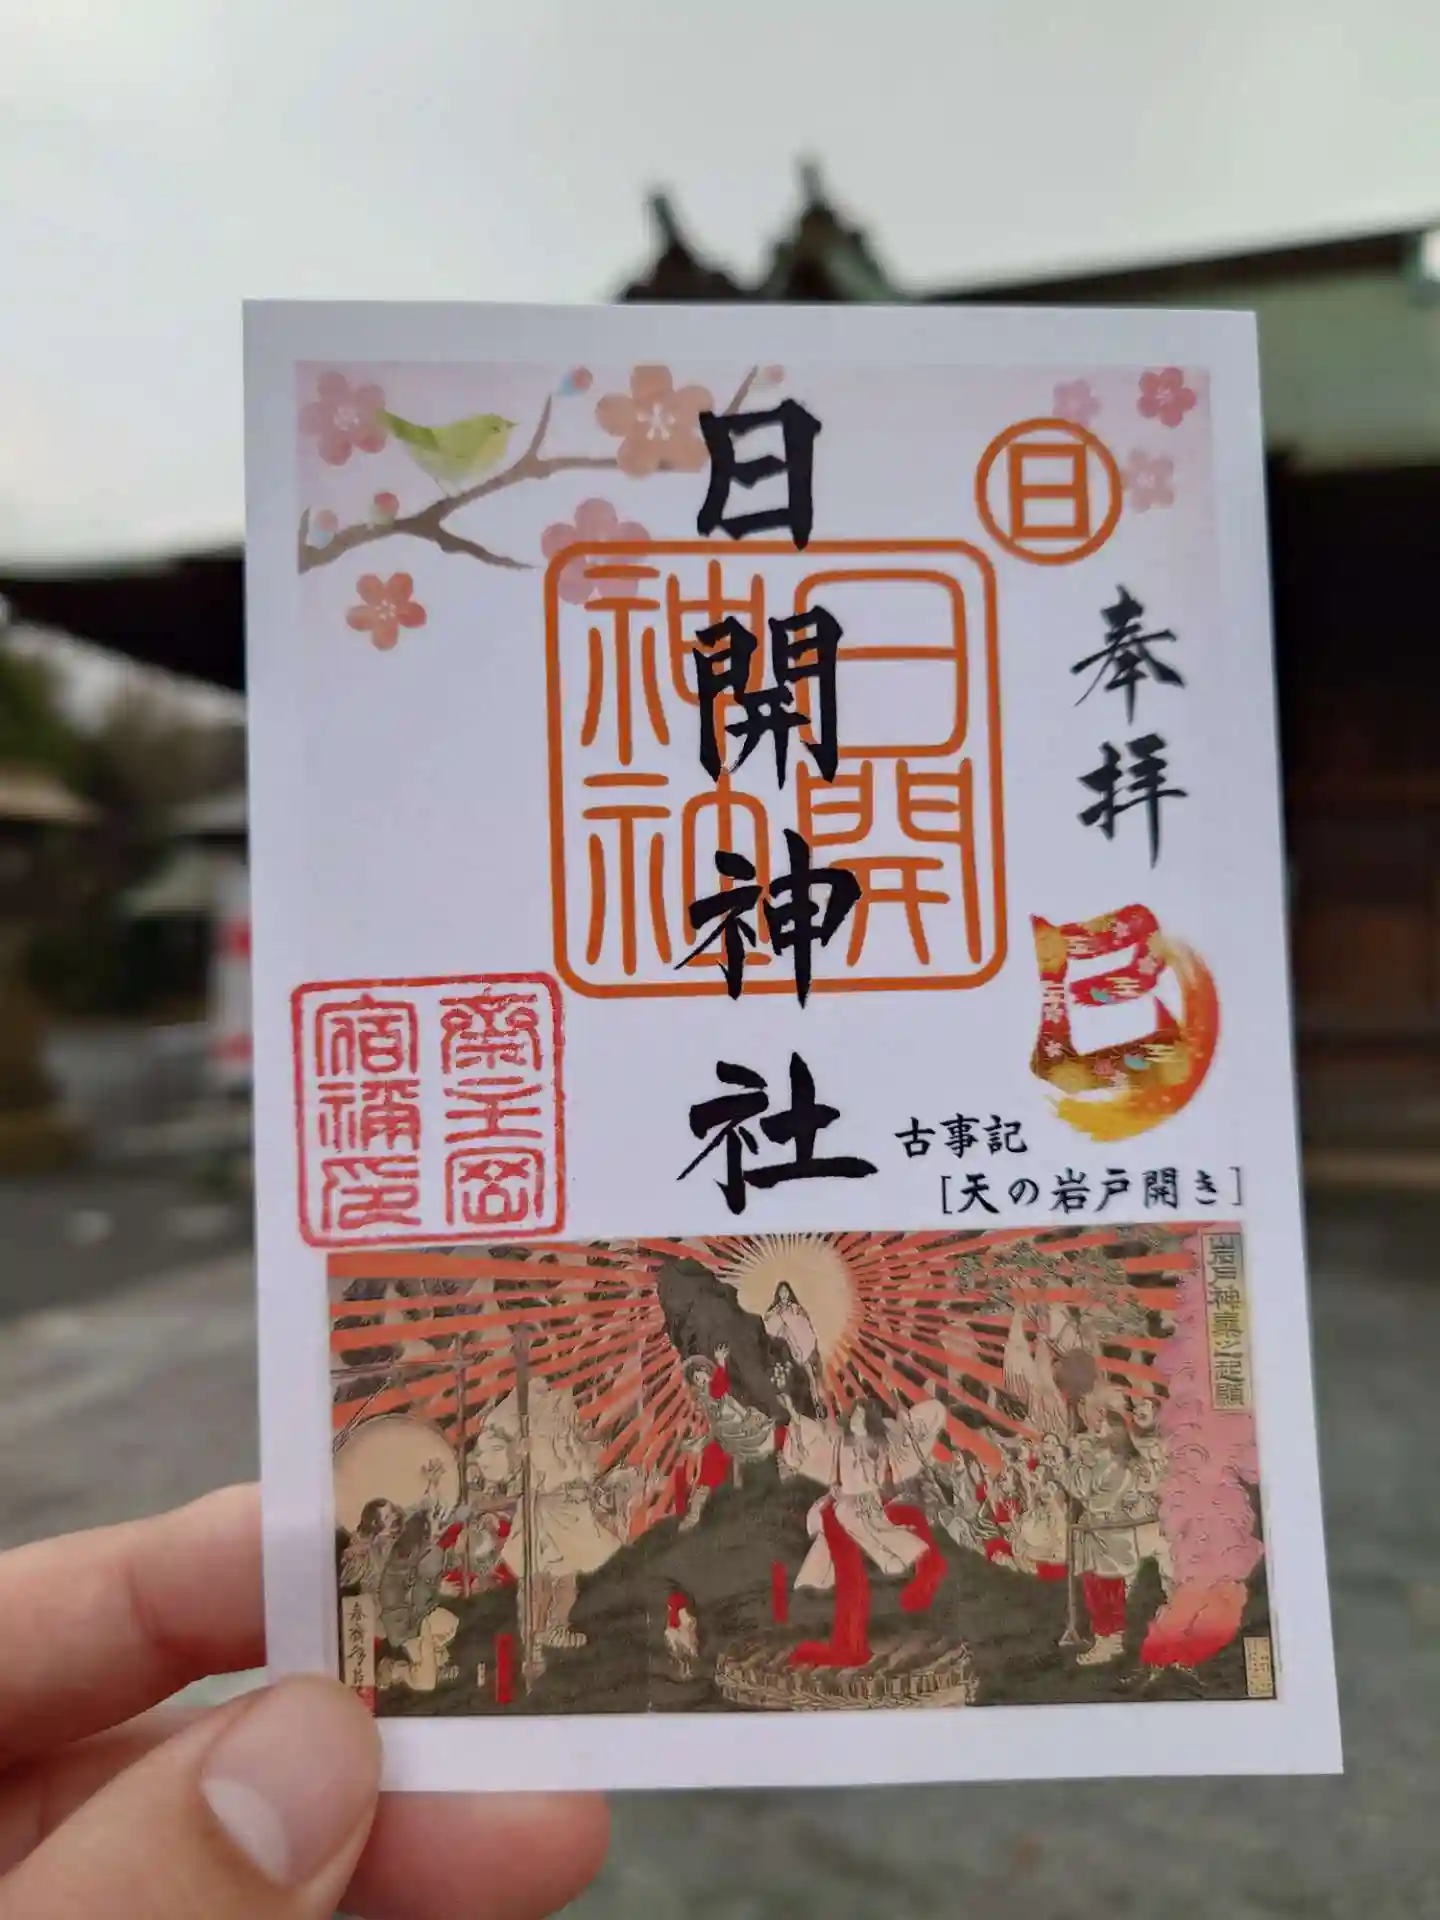 日
奉拝
日開神社
日開神社
巳
古事記
[天の岩戸開き]
岩戸神楽之起顕